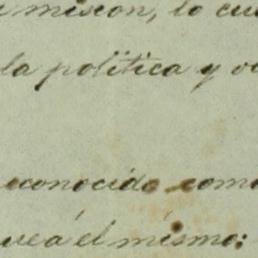 mision, lo cu
la política y o
econocido como
vea él mismo: